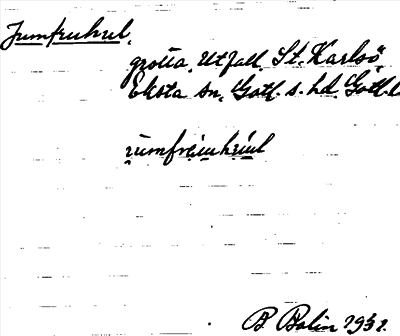 Jumfruhul,
grotta, Utfall, St. Karlsö,
Eksta sn, Gotl. s. hd Gotl. l
B Bolin 1951.